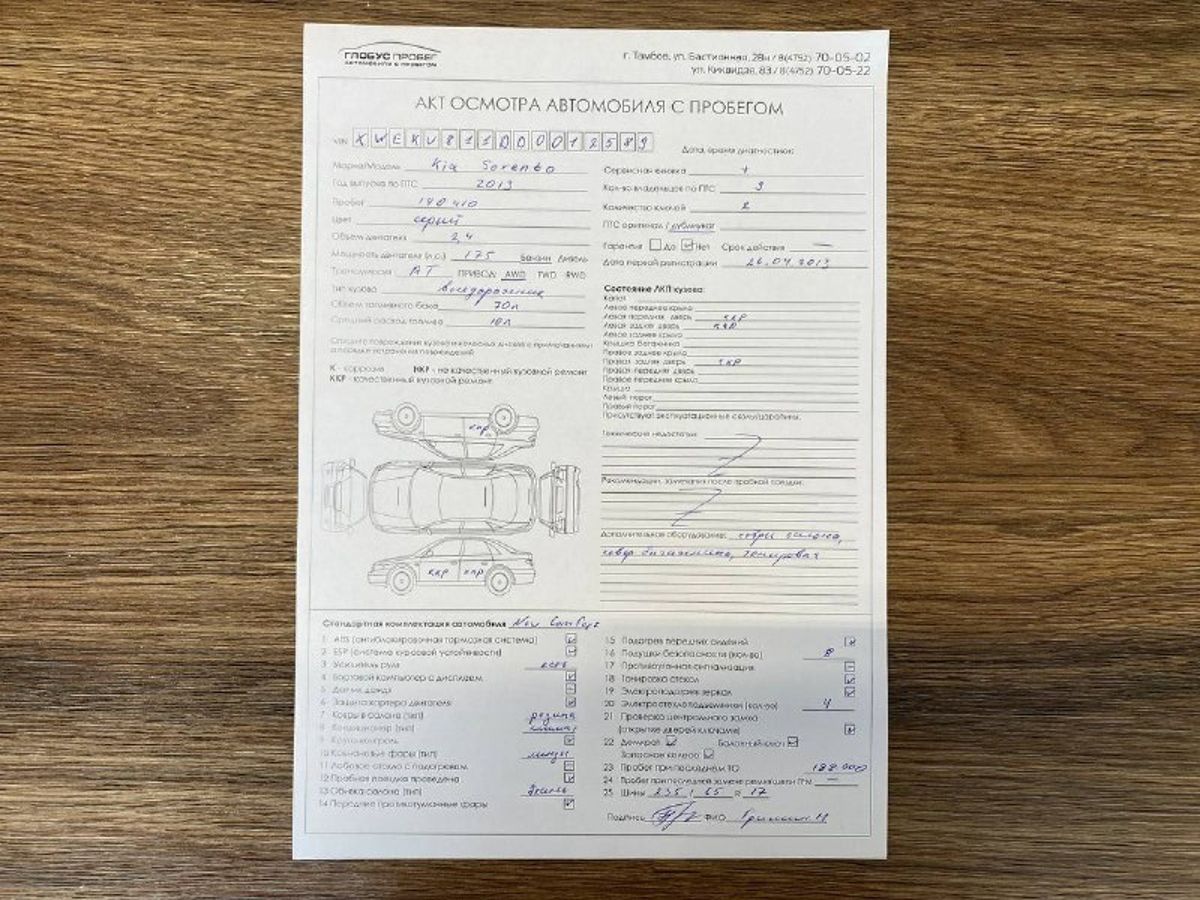 ГЛОБУС ПРОБЕГ
АВТОМОБИЛИ С ПРОБЕГОМ
г. Тамбов, ул. Бастионная, 28н / 8(4752) 70-05-02
ул. Киквидзе, 83 / 8(4752) 70-05-22
АКТ ОСМОТРА АВТОМОБИЛЯ С ПРОБЕГОМ
VIN XWEKU811DD0012589
Дата, время диагностики:
Марка/Модель Kia Sorento
Год выпуска по ПТС 2013
Пробег 190 410
Цвет серый
Объем двигателя 2,4
Мощность двигателя (л.с.) 175 Бензин Дизель
Трансмиссия АТ ПРИВОД: AWD FWD RWD
Тип кузова внедорожник
Объем топливного бака 70л
Средний расход топлива 10л
Сервисная книжка +
Кол-во владельцев по ПТС 3
Количество ключей 2
ПТС оригинал / дубликат
Гарантия Да Нет Срок действия —
Дата первой регистрации 26.04.2013
Состояние ЛКП кузова:
Капот
Левое переднее крыло
Левая передняя дверь ККР
Левая задняя дверь ККР
Левое заднее крыло
Крышка багажника
Правое заднее крыло
Правая задняя дверь ККР
Правая передняя дверь
Правое переднее крыло
Крыша
Левый порог
Правый порог
Присутствуют эксплуатационные сколы/царапины.
К - коррозия НКР - не качественный кузовной ремонт
ККР - качественный кузовной ремонт
ККР
ККР ККР
Технические недостатки:
Рекомендации, замечания после пробной поездки:
Дополнительное оборудование: ковры салона,
ковер багажника, тонировка
Стандартная комплектация автомобиля New Comfort
1 ABS (антиблокировочная тормозная система)
2 ESP (система курсовой устойчивости)
3 Усилитель руля
4 Бортовой компьютер с дисплеем
5 Датчик дождя
6 Защита картера двигателя
7 Ковры в салона (тип) резина
8 Кондиционер (тип) климат
9 Круиз-контроль
10 Ксеноновые фары (тип) линзы
11 Лобовое стекло с подогревом
12 Пробная поездка проведена
13 Обивка салона (тип) ткань
14 Передние противотуманные фары
15 Подогрев передних сидений
16 Подушки безопасности (кол-во) 8
17 Противоугонная сигнализация
18 Тонировка стекол
19 Электроподогрев зеркал
20 Электростеклоподъемники (кол-во) 4
21 Проверка центрального замка
(открытие дверей ключами)
22 Домкрат Балонный ключ
Запасное колесо
23 Пробег при последнем ТО 188.000
24 Пробег при последней замене ремня/цепи ГРМ —
25 Шины 235 / 65 R 17
Подпись ФИО